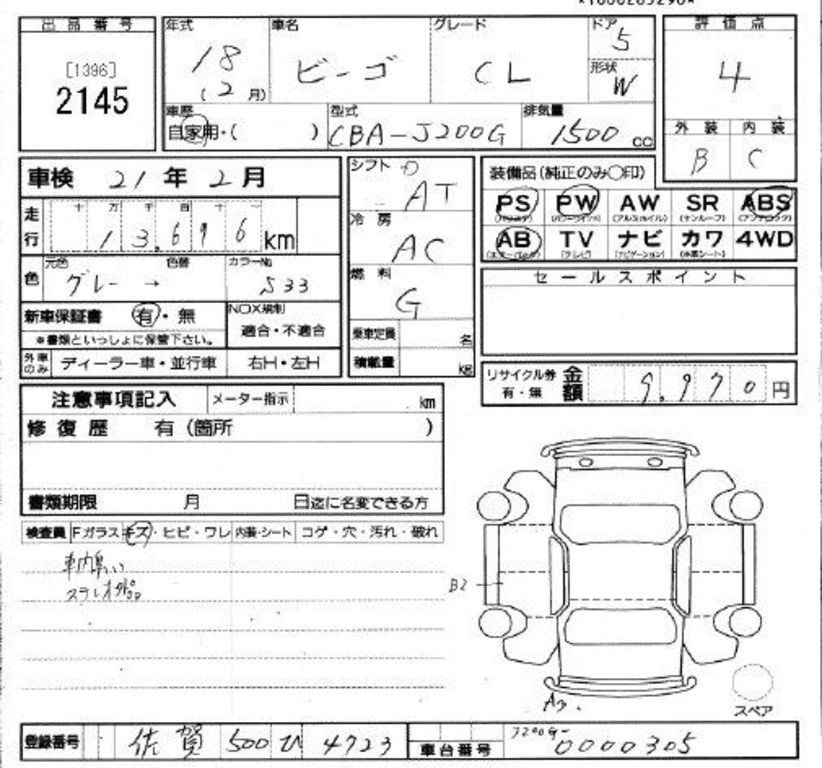 出品番号
[1396]
2145
年式
18
(2月)
車名
ビーゴ
グレード
CL
ドア
5
形状
W
評価点
4
車歴
自家用・( )
型式
CBA-J200G
排気量
1500 cc
外装 内装
B C
車検 21年2月
シフト
AT
装備品(純正のみ○印)
PS PW AW SR ABS
(パワーウインド) (アルミホイル) (サンルーフ)
走行
十 万 千 百 十 一
13,696 km
冷房
AC
AB TV ナビ カワ 4WD
(テレビ) (ナビゲーション) (本革シート)
色
元色 色替 カラーNo
グレー → S33
燃料
G
セールスポイント
新車保証書 有・無
※書類といっしょに保管下さい。
NOX規制
適合・不適合
乗車定員 名
外車のみ ディーラー車・並行車 右H・左H
積載量 kg
リサイクル券 有・無 金額 9,970円
注意事項記入 メーター指示 km
修復歴 有(箇所 )
書類期限 月 日迄に名変できる方
検査員 Fガラス キズ・ヒビ・ワレ 内装・シート コゲ・穴・汚れ・破れ
車内臭い
B2
スペア
登録番号 佐賀 500 ひ 4723
車台番号 J200G-0000305